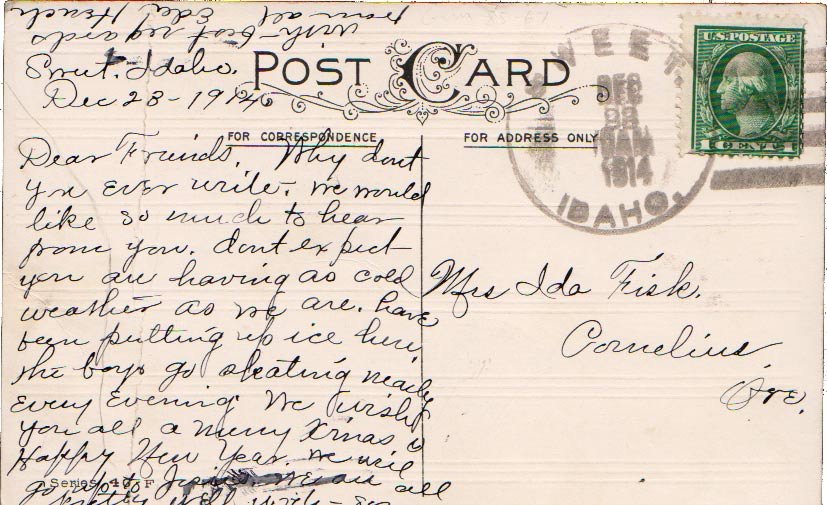 with best regards
from all Eda
Sweet. Idaho.
Dec 28-1914
POST CARD
FOR CORRESPONDENCE
FOR ADDRESS ONLY
SWEET.
DEC
28
1914
IDAHO.
U.S. POSTAGE
1 CENT 1
Dear Friends. Why dont
you ever write. We would
like so much to hear
from you. dont expect
you are having as cold
weather as we are. have
been putting up ice here
the boys go skating nearly
every evening. We wish
you all a merry Xmas &
Happy New Year. We will
go up to all
pretty well write
Mrs Ida Fisk.
Cornelius
Ore.
Series 40 F